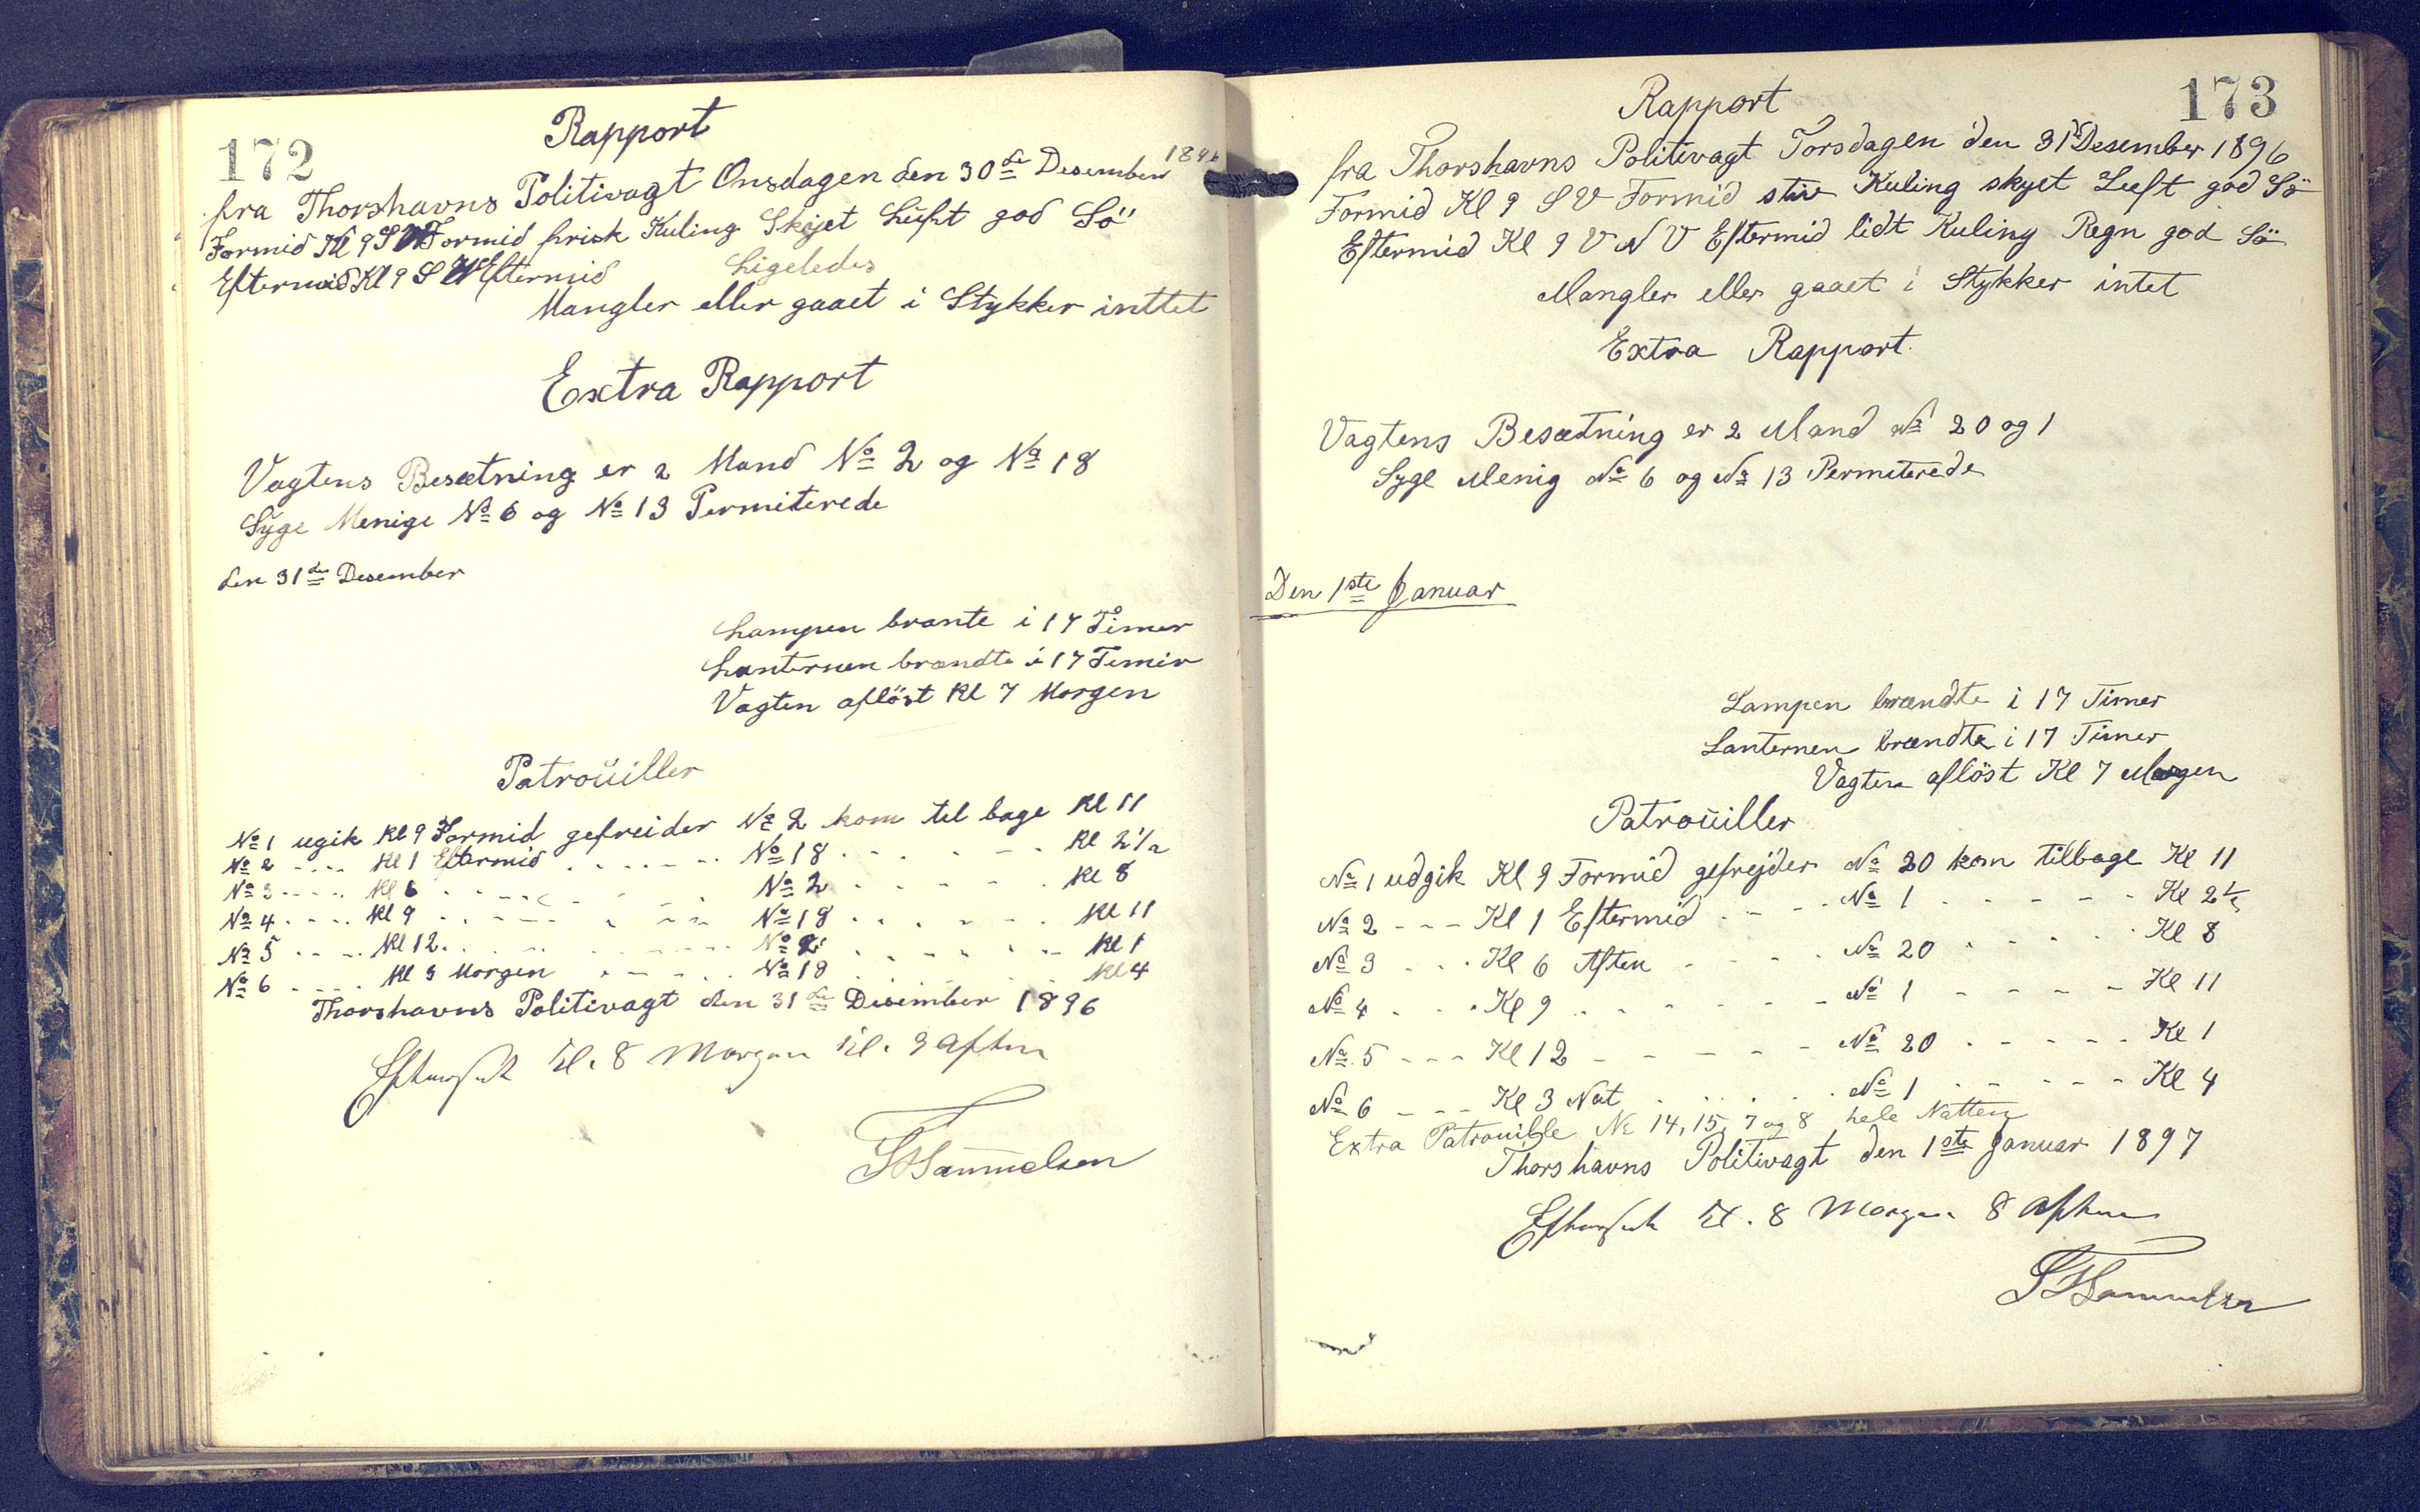 172
Rapport
fra Thorshavns Politivagt Onsdagen den 30de Desember 1896
Formid Kl 9 S V Formid frisk Kuling Skyet Luft god Sö
Eftermid Kl 9 S V Eftermid Ligeledes
Mangler eller gaaet i Stykker inttet
Extra Rapport
Vagtens Besætning er 2 Mand No 2 og No 18
Syge Menige No 6 og No 13 Permiterede
den 31de Desember
Lampen brante i 17 Timer
Lanternen brændte i 17 Timer
Vagten aflöst Kl 7 Morgen
Patroüiller
No 1 ugik Kl 9 Formid gefreider No 2 kom til bage Kl 11
No 2 .... Kl 1 Eftermid ...... No 18 ..... Kl 2 1/2
No 3 .... Kl 6 ...... No 2 ..... Kl 8
No 4 .... Kl 9 ...... No 18 ..... Kl 11
No 5 .... Kl 12 ...... No 2 ..... Kl 1
No 6 .... Kl 3 Morgen ..... No 18 ..... Kl 4
Thorshavns Politivagt den 31de Desember 1896
Efterset Kl. 8 Morgen Kl. 9 Aften
Samuelsen
173
Rapport
fra Thorshavns Politivagt Torsdagen den 31 Desember 1896
Formid Kl 9 S V Formid stiv Kuling skyet Luft god Sö
Eftermid Kl 9 V N V Eftermid lidt Kuling Regn god Sö
Mangler eller gaaet i Stykker intet
Extra Rapport.
Vagtens Besætning er 2 Mand No 20 og 1
Syge Menig No 6 og No 13 Permeterede
Den 1ste Januar
Lampen brændte i 17 Timer
Lanternen brændte i 17 Timer
Vagten aflöst Kl 7 Morgen
Patroüiller
No 1 udgik Kl 9 Formid gefrejder No 20 kom tilbage Kl 11
No 2 --- Kl 1 Eftermid ---- No 1 ----- Kl 2 1/2
No 3 ... Kl 6 Aften ---- No 20 ..... Kl 8
No 4 ... Kl 9 ------ No 1 ---- Kl 11
No 5 --- Kl 12 ------ No 20 ----- Kl 1
No 6 --- Kl 3 Nat ..... No 1 ----- Kl 4
Extra Patrouille No 14, 15, 7 og 8 hele Natten
Thorshavns Politivagt den 1ste Januar 1897
Efterset Kl. 8 Morgen 8 Aften
Samuelsen